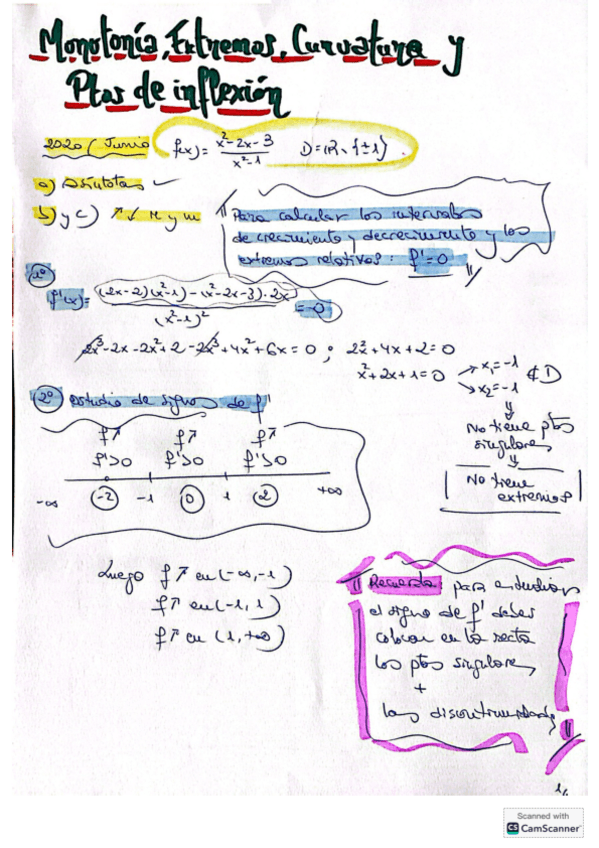 Monotonía, Extremos, Curvatura y
Ptos de inflexión
2020 (Junio) f(x) = x²-2x-3 / x²-1 D=ℝ\{±1}
a) Asíntotas ✓
b) y c) ↗↘ M y m
" Para calcular los intervalos
de crecimiento y decrecimiento y los
extremos relativos: f'=0 "
1º
f'(x) = (2x-2)(x²-1)-(x²-2x-3)·2x / (x²-1)² = 0
2x³-2x-2x²+2-2x³+4x²+6x=0 ; 2x²+4x+2=0
x²+2x+1=0 → x₁=-1 → x₂=-1 ∉ D
⇓
No tiene ptos
singulares
⇓
No tiene
extremos
2º estudio de signos de f'
f↗ f↗ f↗
f'>0 f'>0 f'>0
-∞ -2 -1 0 1 2 +∞
Luego f↗ en (-∞,-1)
f↗ en (-1, 1)
f↗ en (1, +∞)
" Recuerda: para estudiar
el signo de f' debes
colocar en la recta
los ptos singulares
+
las discontinuidades "
Scanned with
CS CamScanner